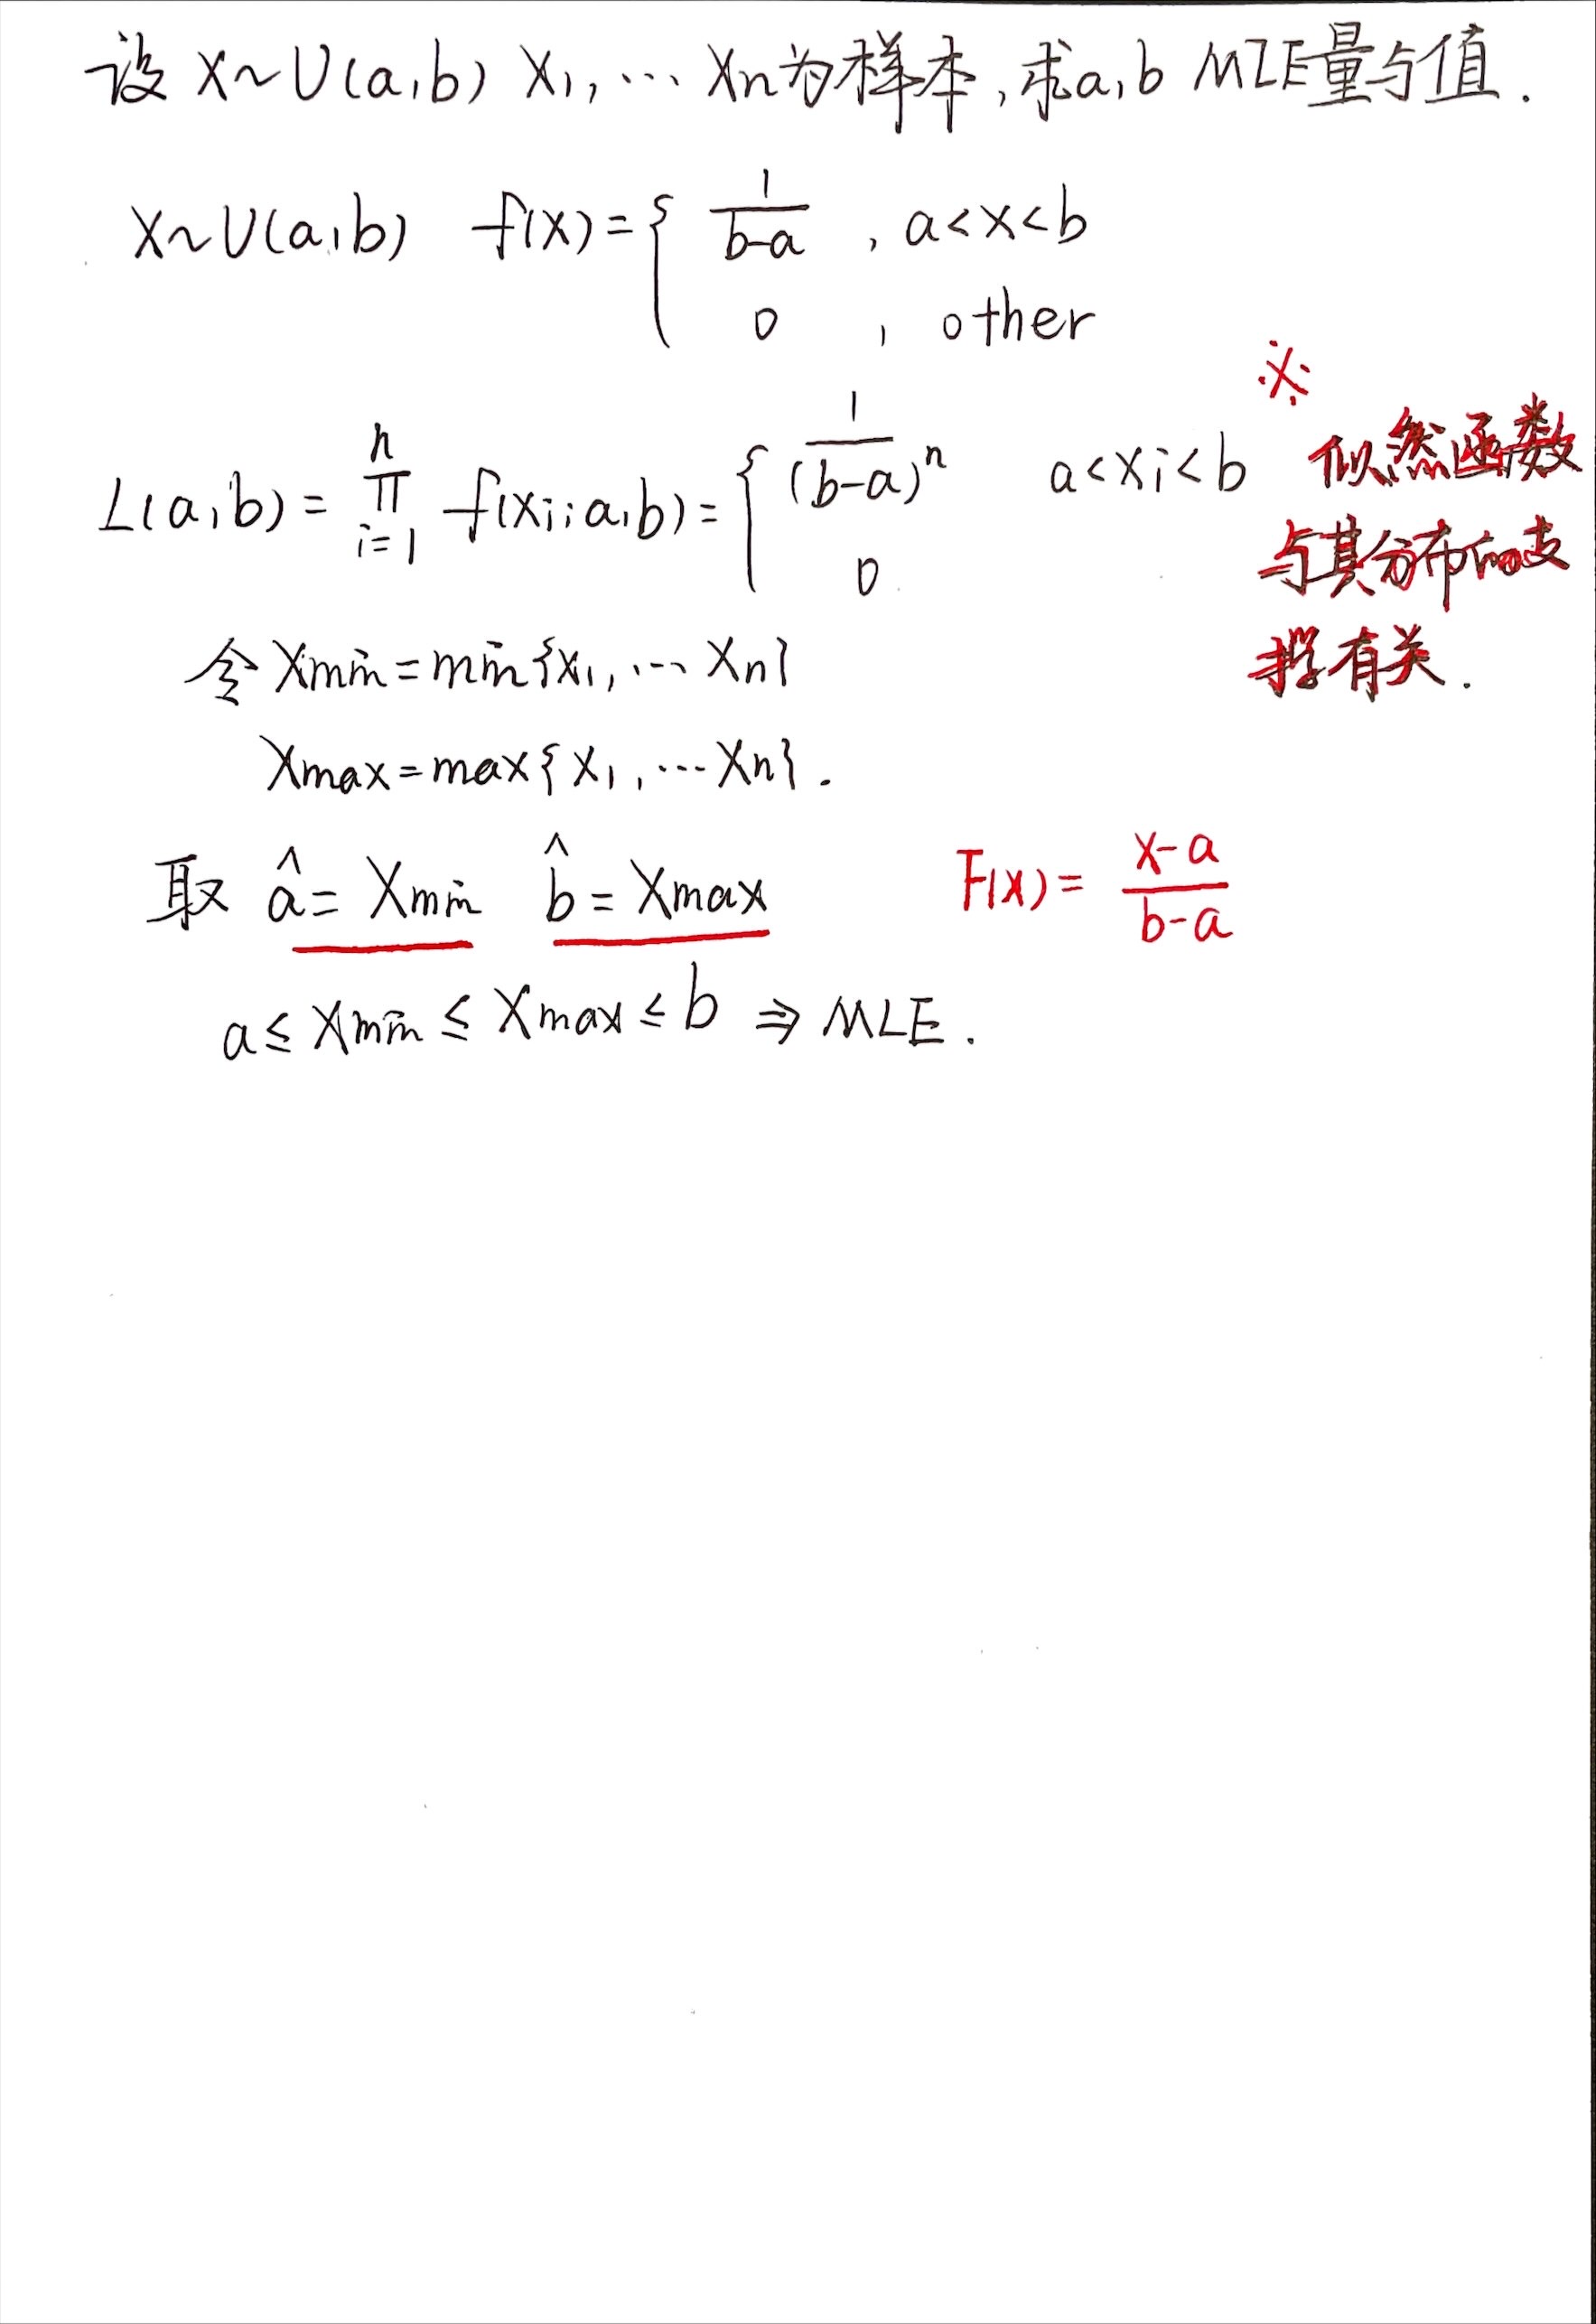 设 X~U(a,b) X1,…Xn为样本,求a,b MLE量与值.
X~U(a,b) f(x)={ 1/(b-a) , a<x<b
0 , other
※
L(a,b)=∏_{i=1}^{n} f(xi;a,b)={ 1/(b-a)^n a<xi<b
0
似然函数
与其分布的支
撑有关.
令 Xmin=min{x1,…Xn}
Xmax=max{x1,…Xn}.
取 â=Xmin b̂=Xmax
F(x)=(x-a)/(b-a)
a≤Xmin≤Xmax≤b ⇒ MLE.